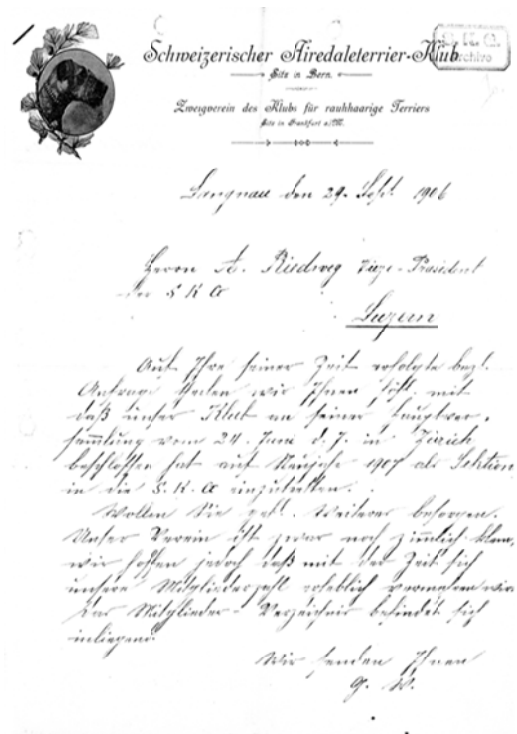 Schweizerischer Airedaleterrier-Klub
Sitz in Bern.
Zweigverein des Klubs für rauhhaarige Terriers
Sitz in Frankfurt a/M.
S. K. G.
Archiv
Langnau den 29. Sept. 1906
Herrn A. Riedweg Vize-Präsident
der S K G
Luzern
Auf Ihre seiner Zeit erfolgte bezl.
Anfrage theilen wir Ihnen höfl. mit
daß unser Klub an seiner Hauptver-
sammlung vom 24. Juni d. J. in Zürich
beschlossen hat auf Neujahr 1907 als Sektion
in die S. K. G einzutretten.
Wollen Sie gefl. Weiteres besorgen.
Unser Verein ist zwar noch ziemlich klein,
wir hoffen jedoch daß mit der Zeit sich
unsere Mitgliederzahl erheblich vermehren wird
Das Mitglieder-Verzeichnis befindet sich
inliegend.
Wir senden Ihnen